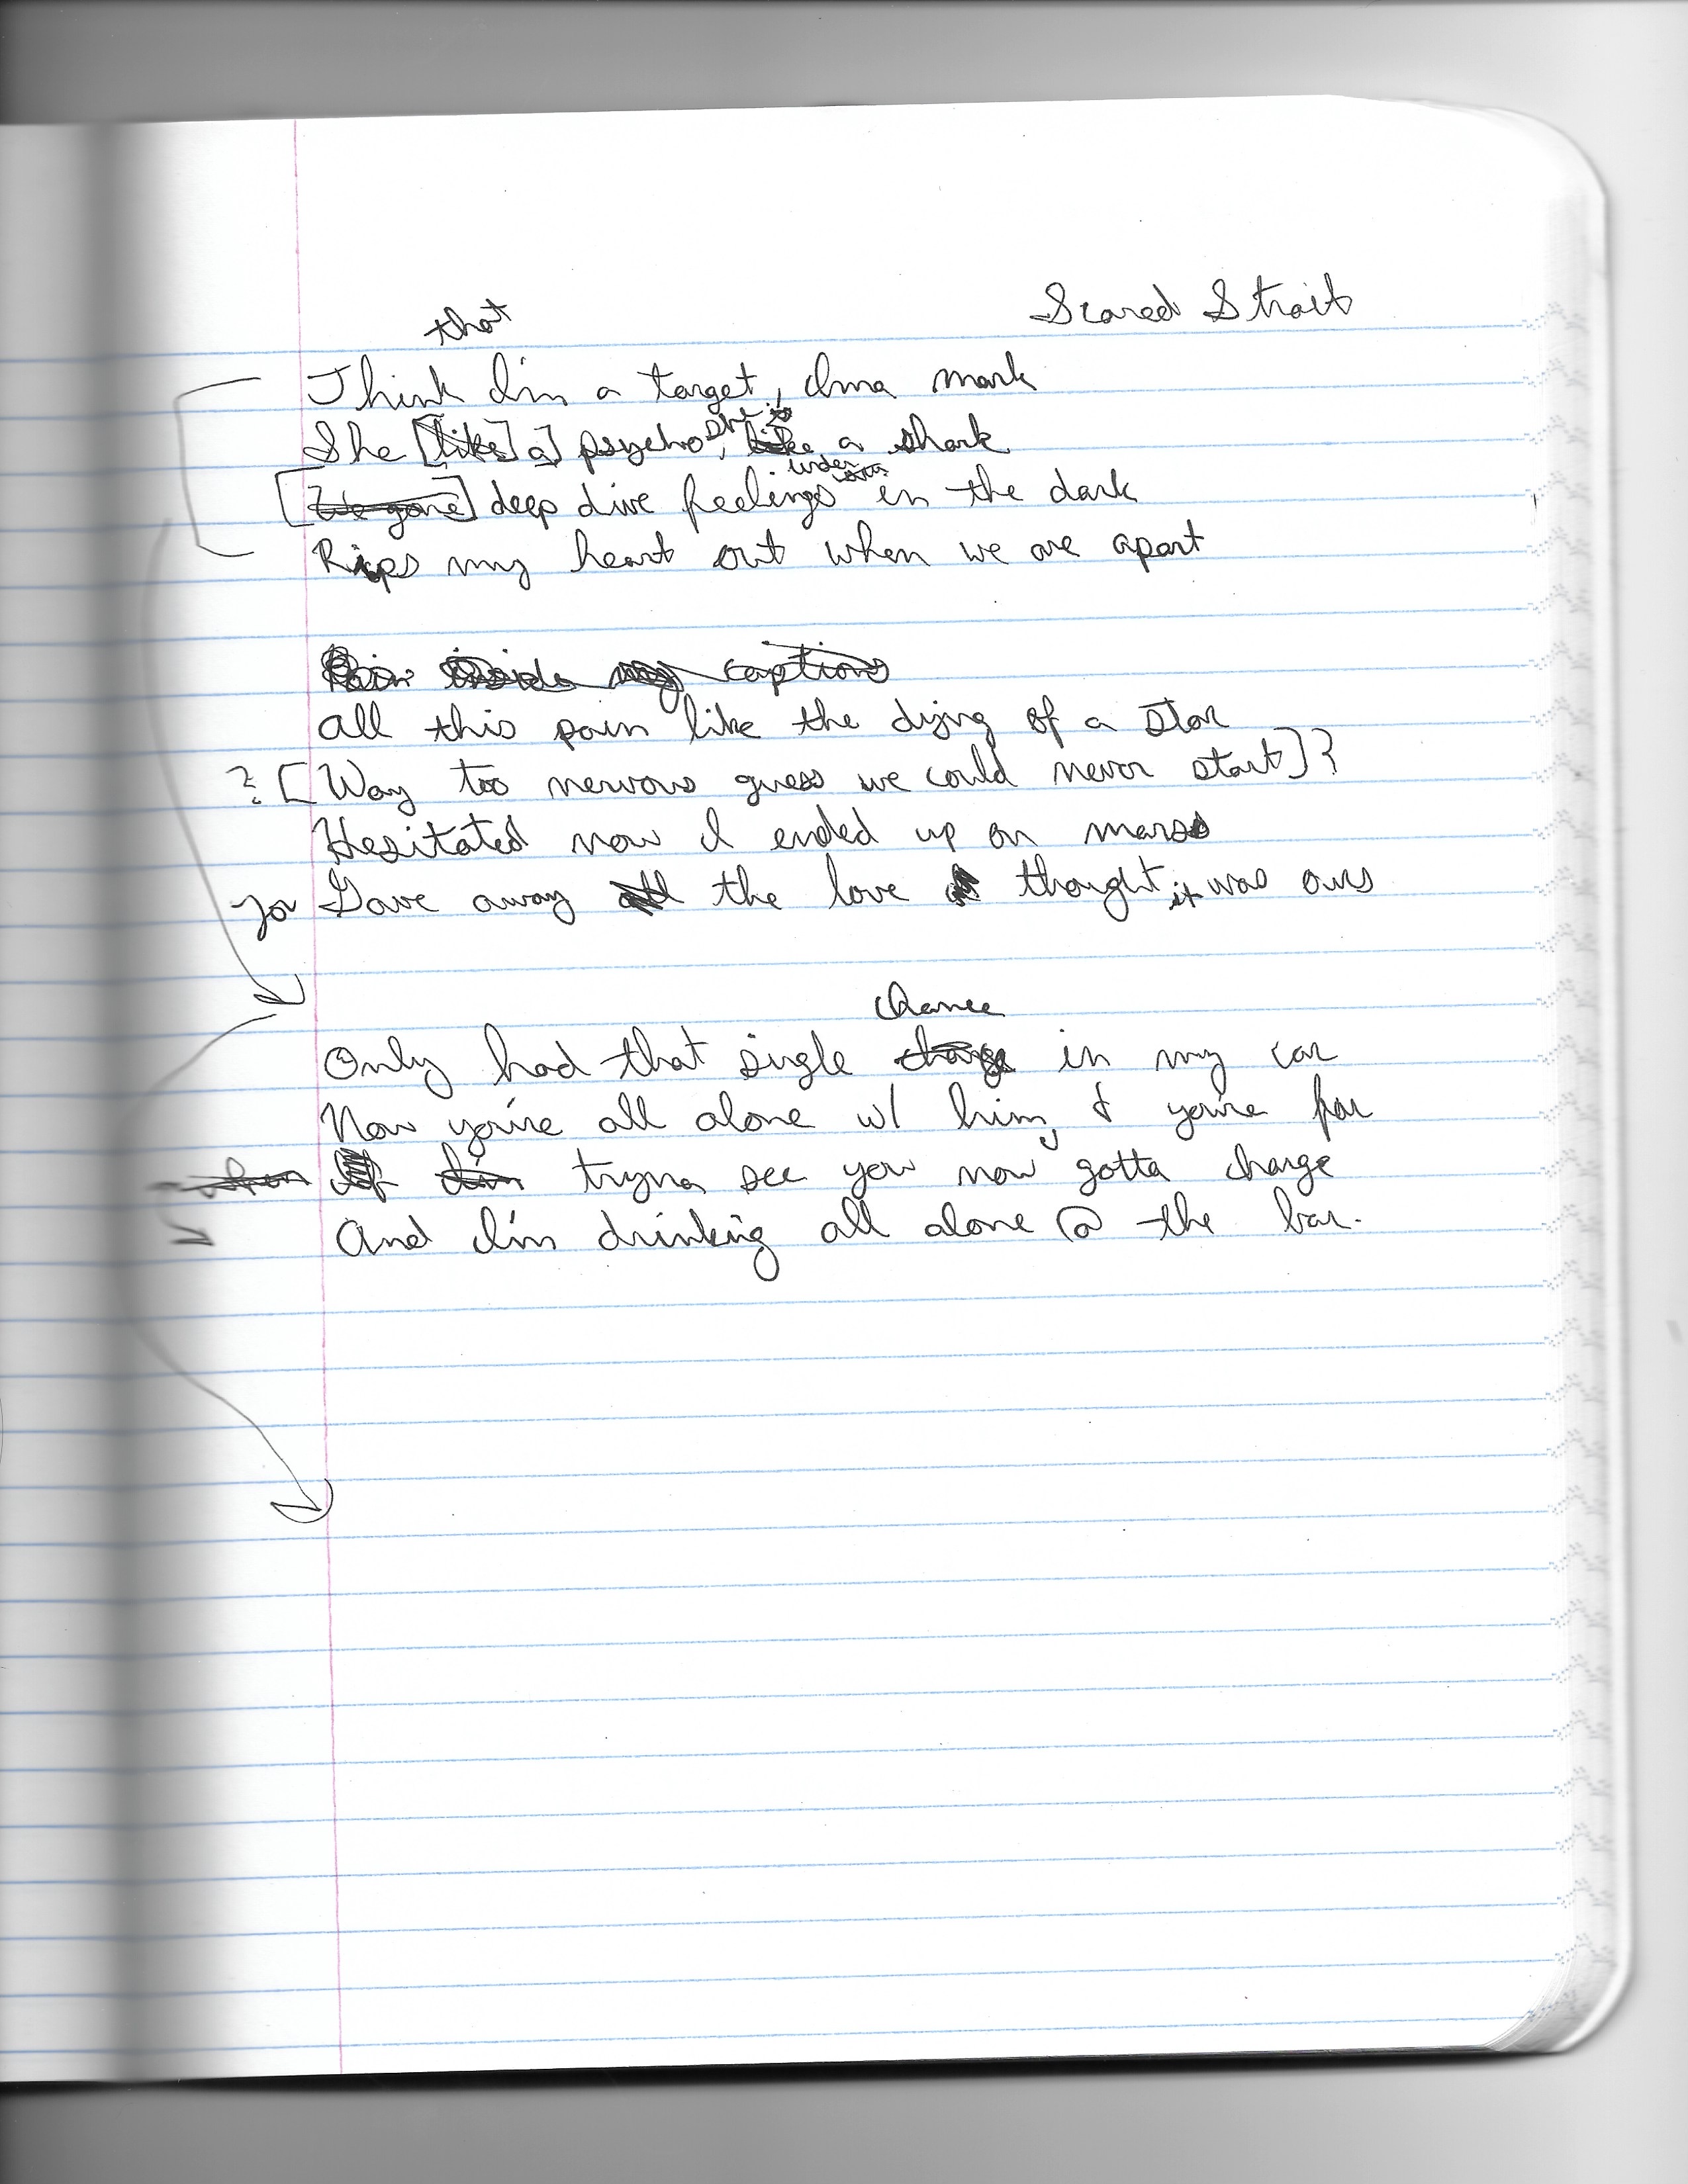 Scared Strait
that
Think I'm a target, Ima mark
She [like] a] psycho, she is a shark
[We gone] deep dive feelings under in the dark
Rips my heart out when we are apart
my caption
All this pain like the dying of a star
? [Way too nervous guess we could never start] ?
Hesitated now I ended up on mars
for Gave away all the love thought it was ours
chance
Only had that single change in my car
Now you're all alone w/ him, & you're far
If I'm tryna see you now gotta charge
And I'm drinking all alone @ the bar.